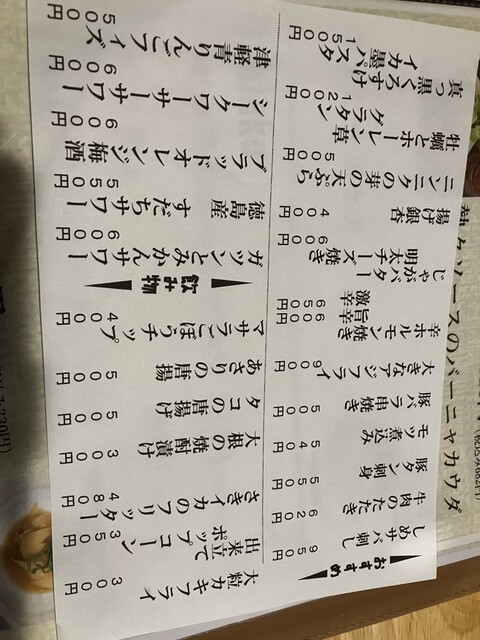 おすすめ
しめサバ刺し 950円
牛肉のたたき 620円
豚タン刺身 550円
モツ煮込み 540円
豚バラ串焼き 500円
大きなアジフライ 900円
ホルモン焼き
辛 旨辛 600円
激辛 650円
じゃがバター
明太チーズ焼き 600円
揚げ銀杏 400円
ニンニクの芽の天ぷら 500円
牡蠣とホーレン草
グラタン 1200円
真っ黒くろすけ
イカ墨パスタ 1500円
大粒カキフライ 300円
出来立て
ポップコーン 350円
ささきイカのフリッター 480円
大根の焼酎漬け 300円
タコの唐揚げ 500円
あさりの唐揚 500円
マサラごぼうチップ 400円
飲み物
ガツンとみかんサワー 600円
徳島産 すだちサワー 550円
ブラッドオレンジ梅酒 600円
シークワーサーサワー 600円
津軽青りんごフィズ 500円
ソースのバーニャカウダ